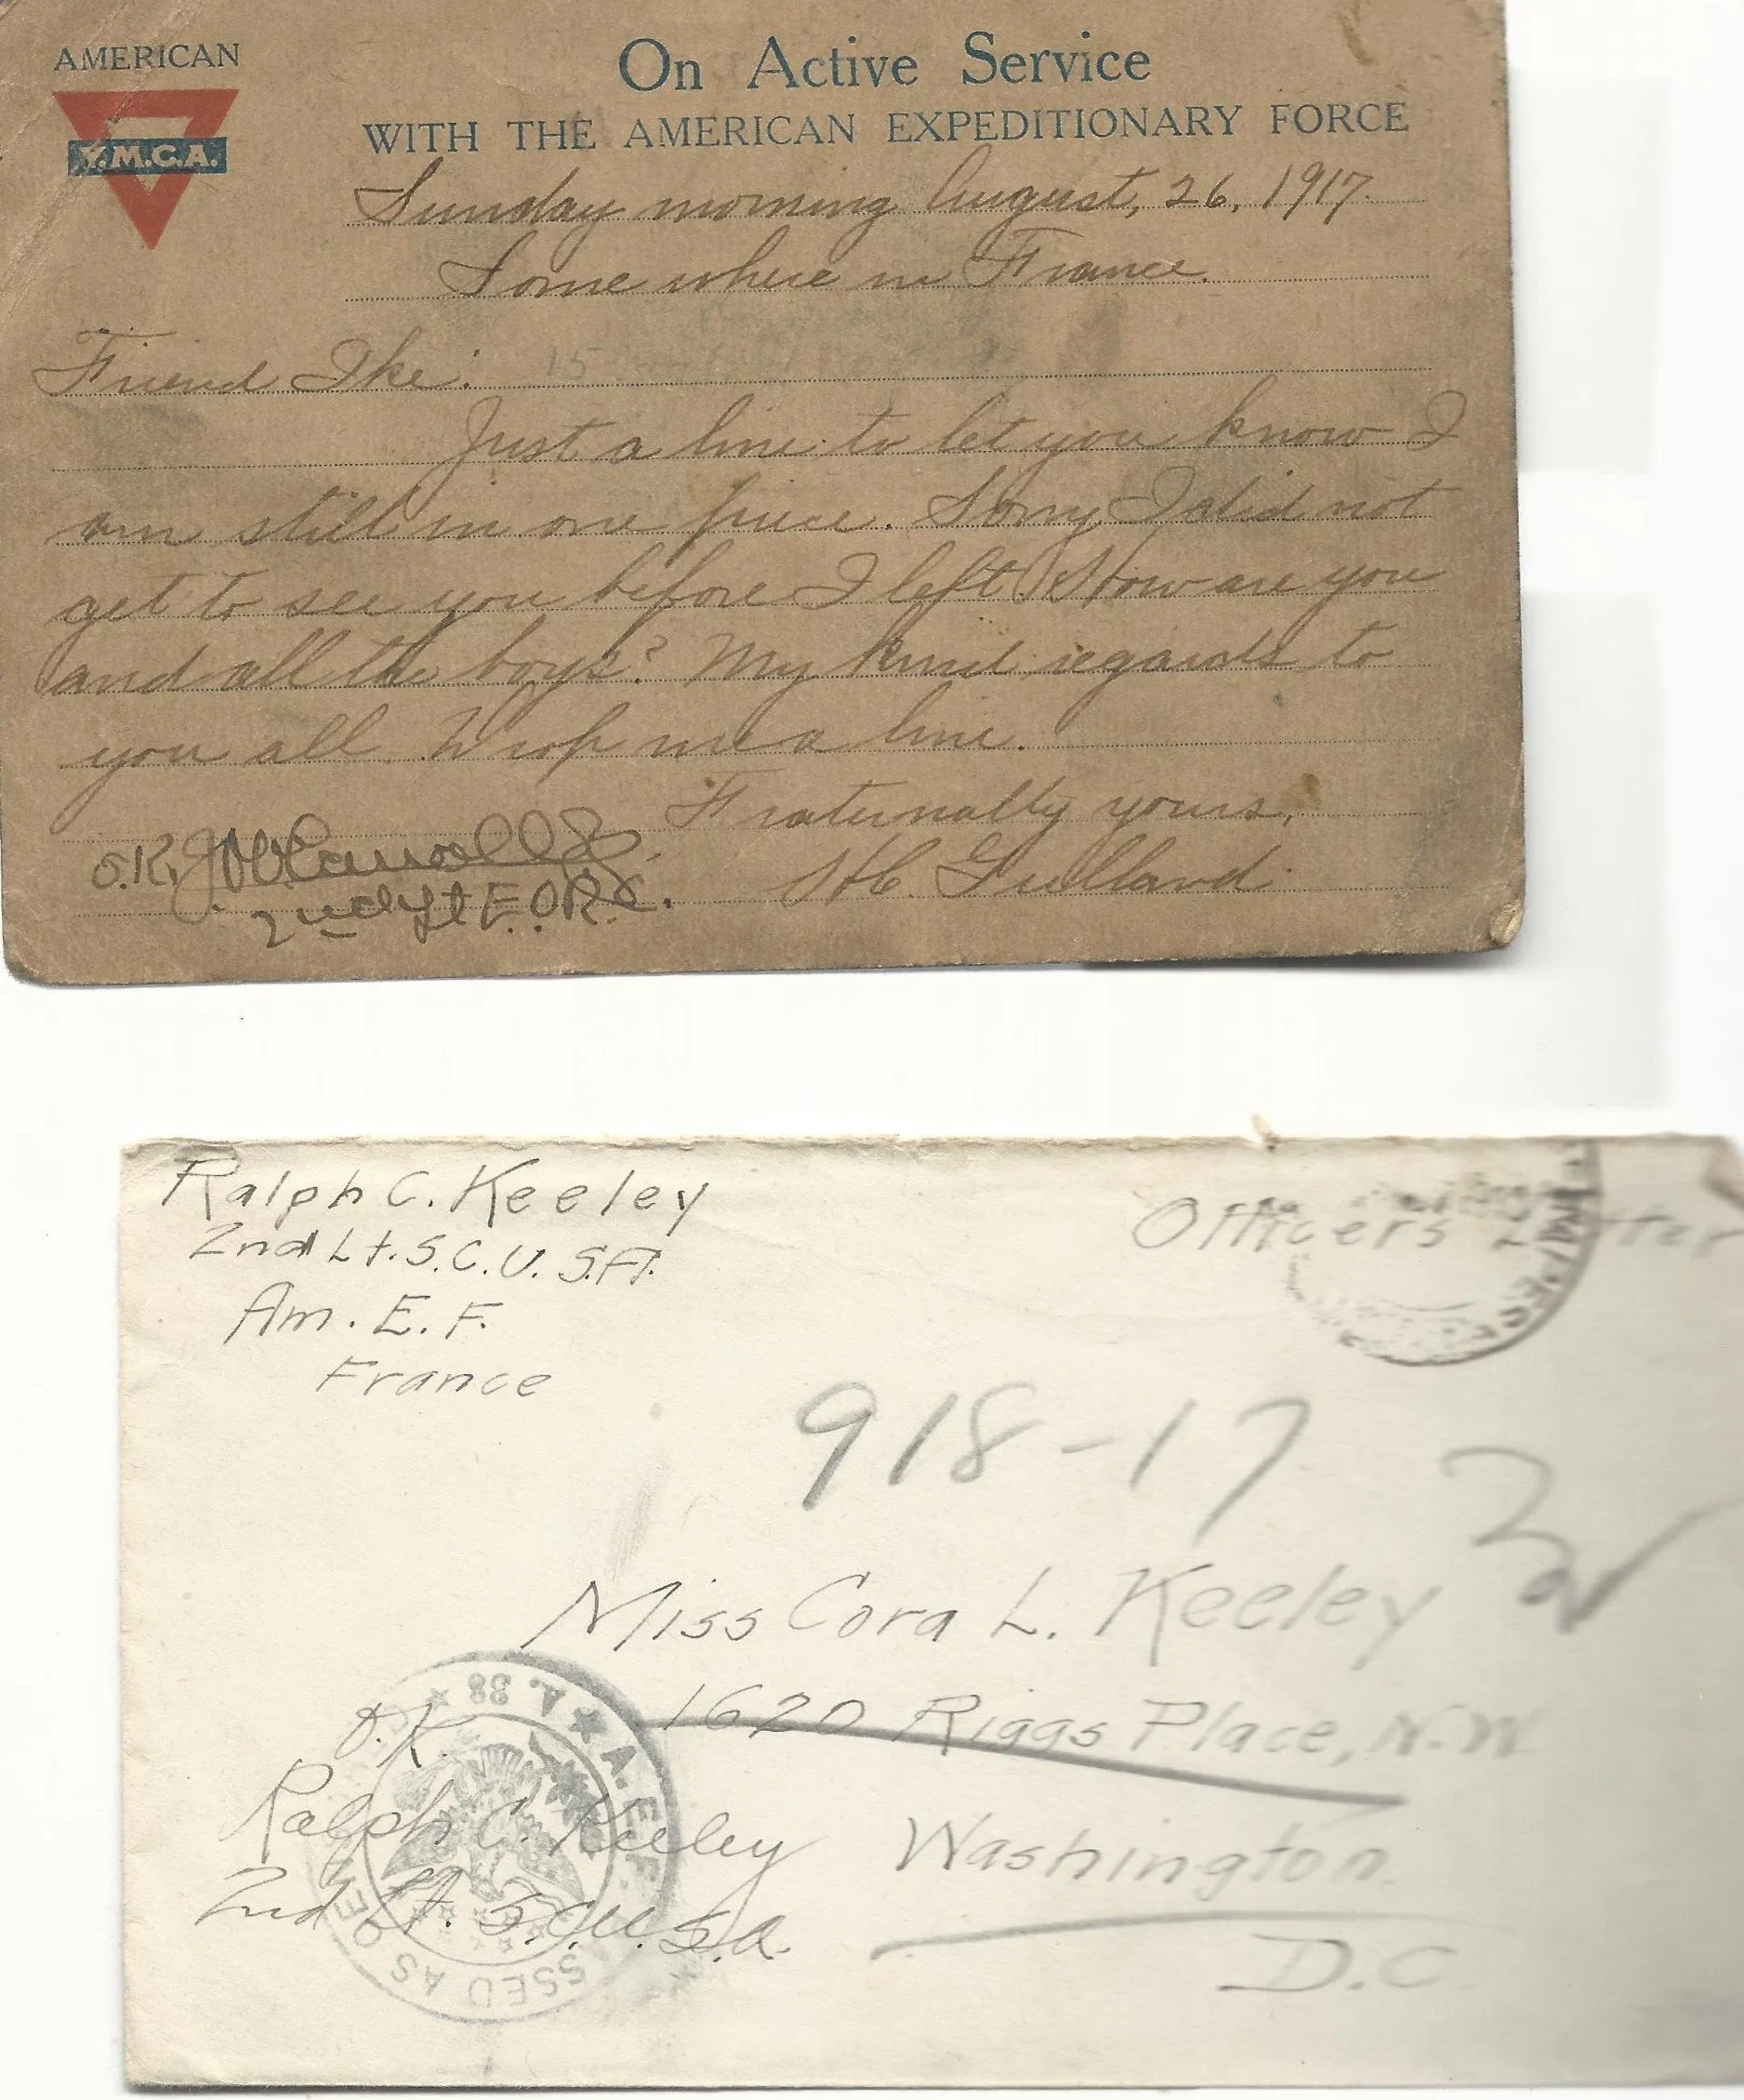 AMERICAN
Y.M.C.A.
On Active Service
WITH THE AMERICAN EXPEDITIONARY FORCE
Sunday morning August, 26, 1917.
Some where in France.
Friend Ike:
Just a line to let you know I
am still in one piece. Sorry I did not
get to see you before I left. How are you
and all the boys? My kind regards to
you all. Drop me a line.
Fraternally yours,
Gulland.
O.K.
2nd Lt E.O.R.C.
Ralph C. Keeley
2nd Lt. S.C. U.S.A.
Am. E. F.
France
Officers Letter
918-17
Miss Cora L. Keeley
1620 Riggs Place, N.W.
Washington.
D.C.
O.K.
Ralph C. Keeley
2nd Lt. S.C. U.S.A.
A.E.F. PASSED AS CENSORED A. 38